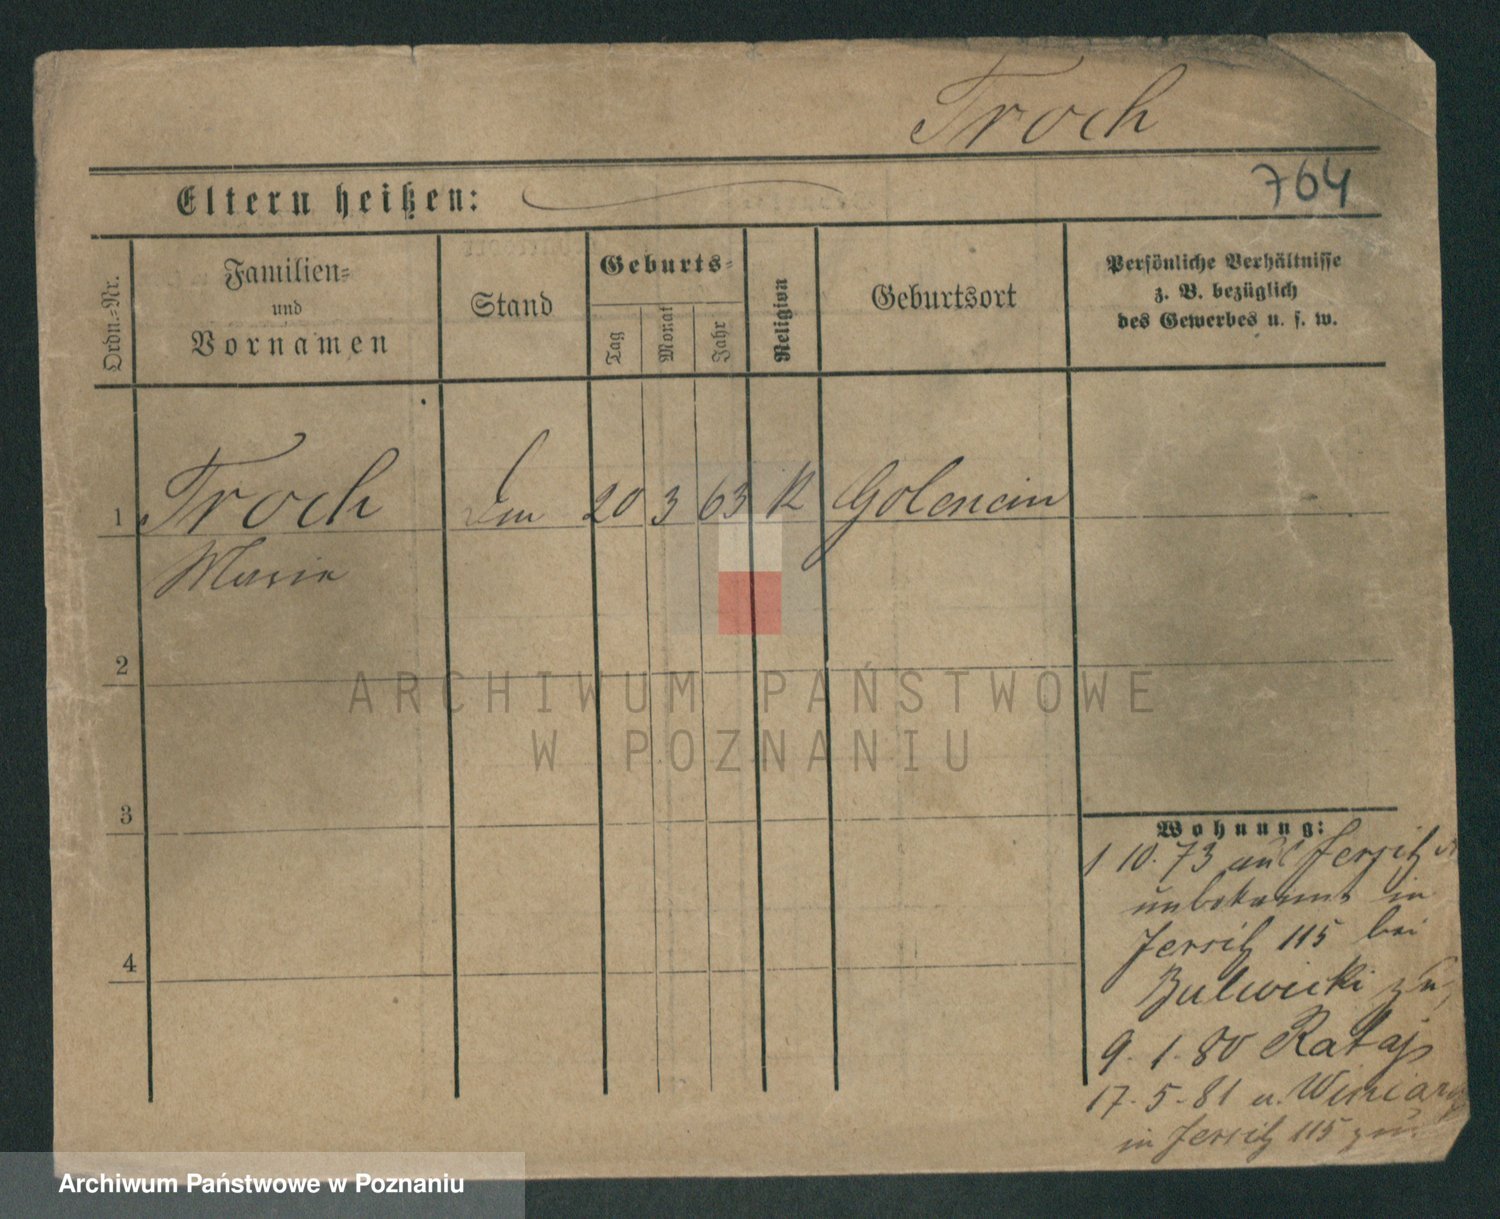 Troch
764
Eltern heißen:
Ordn.-Nr.
Familien-
und
Vornamen
Stand
Geburts-
Tag
Monat
Jahr
Religion
Geburtsort
Persönliche Verhältnisse
z. B. bezüglich
des Gewerbes u. s. w.
1 Troch 20 3 63 K Golencin
Maria
2
3
4
ARCHIWUM PAŃSTWOWE
W POZNANIU
Wohnung:
1 10. 73 auf Jersitz
unbekannt in
Jersitz 115 bei
Bulwicki zu,
9. 1. 80 Rataj
17. 5. 81 a.
in Jersitz 115 zu.
Archiwum Państwowe w Poznaniu